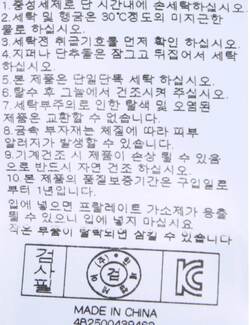 1.중성세제로 단 시간내에 손세탁하십시오.
2.세탁 및 헹굼은 30℃정도의 미지근한
물로 하십시오.
3.세탁전 취급기호를 먼저 확인 하십시오.
4.지퍼나 단추들은 잠그고 뒤집어서 세탁
하십시오.
5.본 제품은 단일단독 세탁 하십시오.
6.탈수 후 그늘에서 건조시켜 주십시오.
7.세탁부주의로 인한 탈색 및 오염된
제품은 교환할 수 없습니다.
8.금속 부자재는 체질에 따라 피부
알러지가 발생할 수 있습니다.
9.기계건조 시 제품이 손상 될 수 있음
으로 반드시 자연 건조 하십시오.
10.본 제품의 품질보증기간은 구입일로
부터 1년입니다.
입에 넣으면 프탈레이트 가소제가 용출
될 수 있으니 입에 넣지 마십시요
작은 부품이 탈락되면 삼킬 수 있습니다
검사필
검
MADE IN CHINA